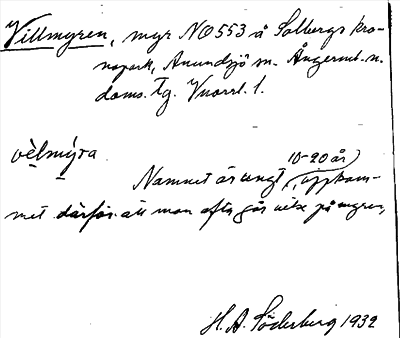 Villmyren, myr NO 553 å Solbergs kro-
nopark, Anundsjö sn. Ångerml. n.
doms. Tg. Vuorrl. 1.
vèlmýra
10-20 år)
Namnet är ungt, uppkom-
met därför att man ofta går vilse på myren,
H. A. Söderberg 1932